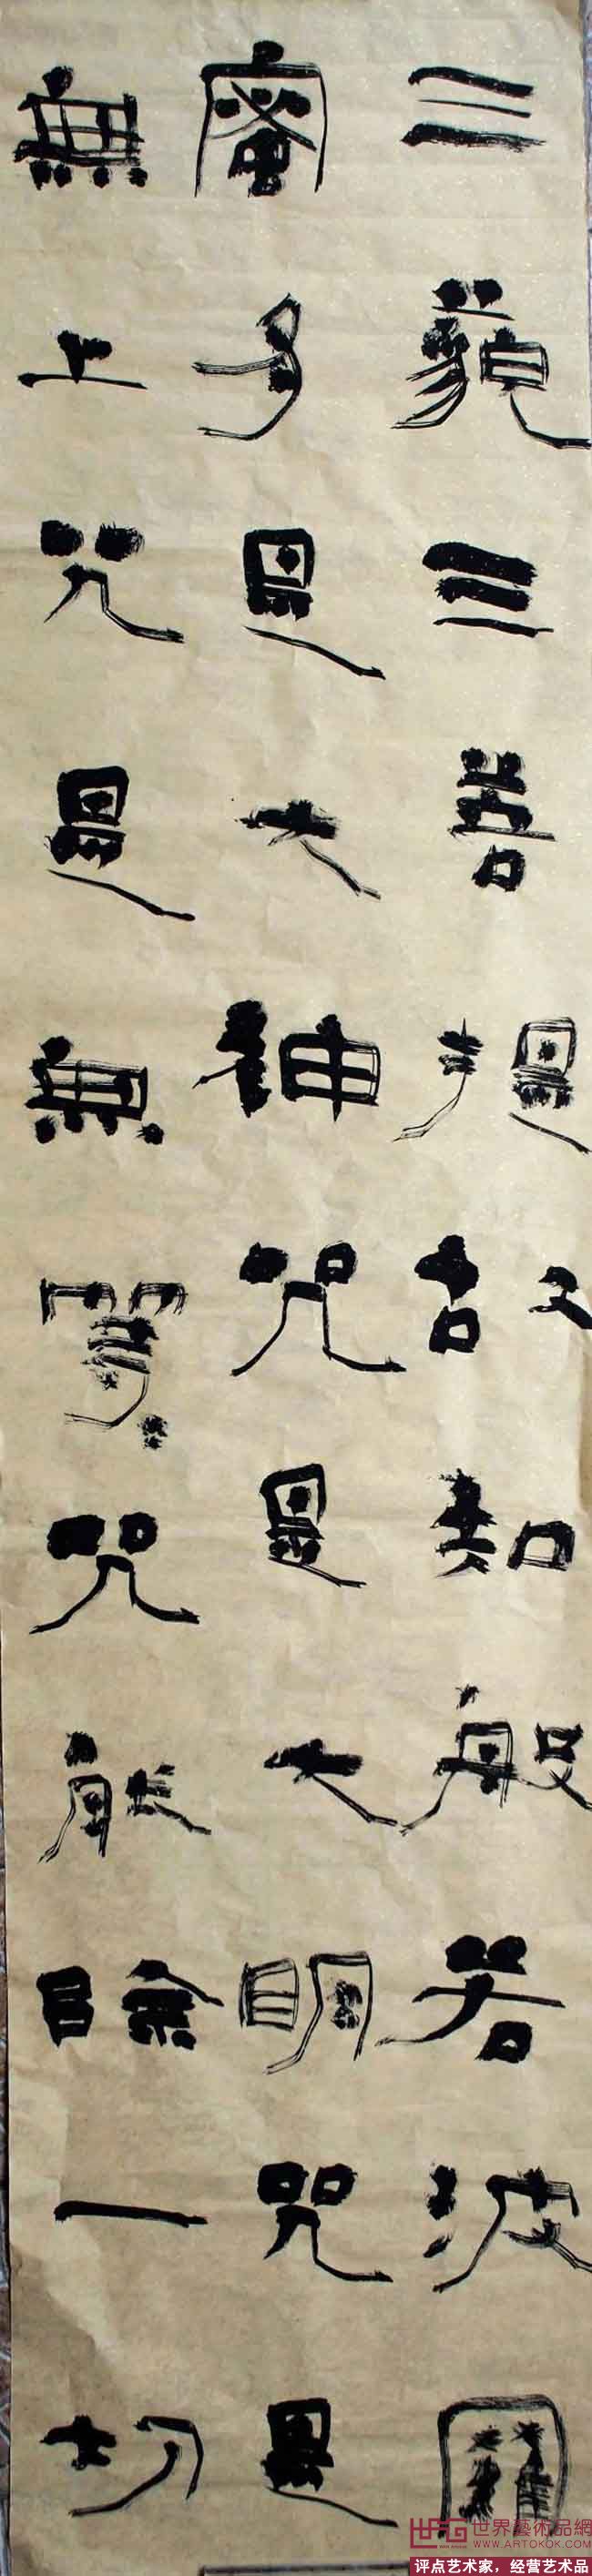 三藐三菩提故知般若波羅
蜜多是大神咒是大明咒是
無上咒是無等〻咒能除一切
世界藝術品網
WWW.ARTOKOK.COM
评点艺术家，经营艺术品